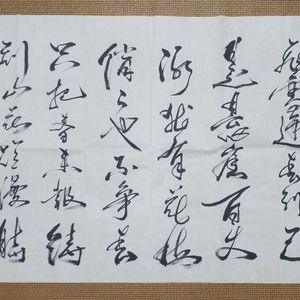 飛雪迎春到已
是悬崖百丈
冰犹有花枝
俏〻也不争春
只把春来报待
到山花烂漫時